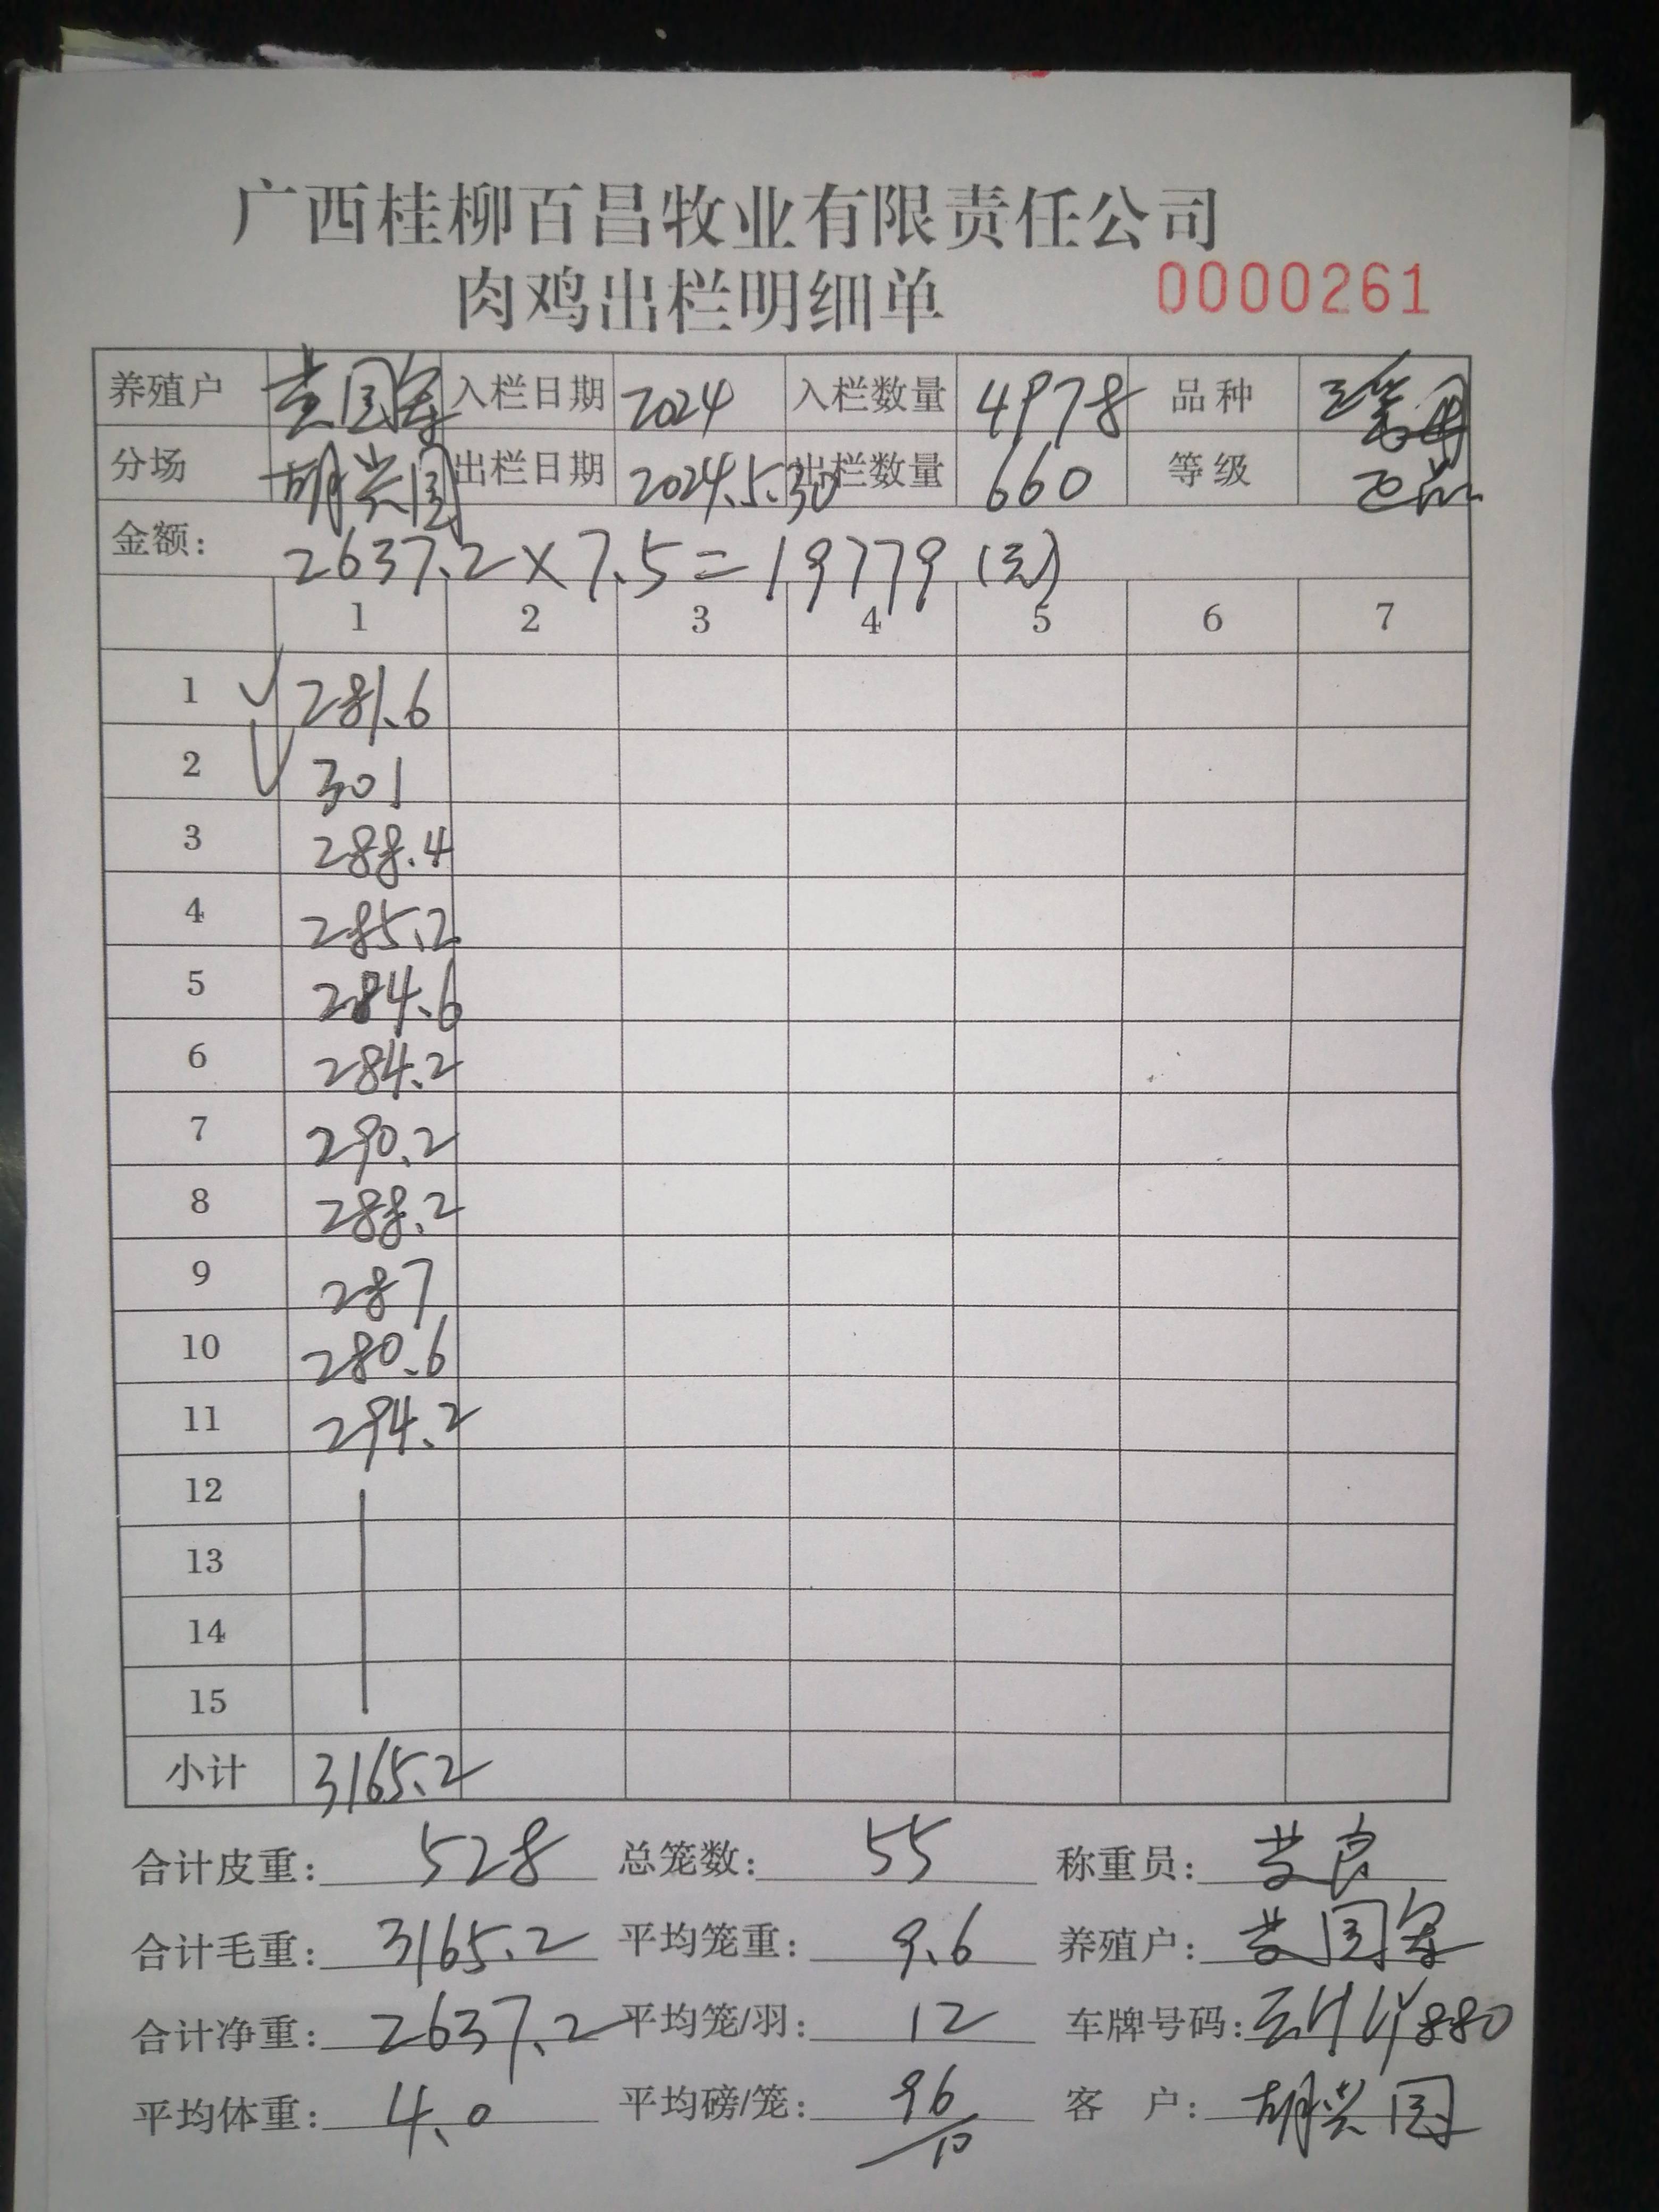 广西桂柳百昌牧业有限责任公司
肉鸡出栏明细单 0000261
养殖户 黄国军 入栏日期 2024 入栏数量 4978 品种
分场 胡兴国 出栏日期 2024.5.30 出栏数量 660 等级
金额: 2637.2×7.5=19779(元)
1 2 3 4 5 6 7
1 281.6
2 301
3 288.4
4 285.2
5 284.6
6 284.2
7 290.2
8 288.2
9 287
10 280.6
11 294.2
12
13
14
15
小计 3165.2
合计皮重: 528 总笼数: 55 称重员:
合计毛重: 3165.2 平均笼重: 9.6 养殖户: 黄国军
合计净重: 2637.2 平均笼/羽: 12 车牌号码:
平均体重: 4.0 平均磅/笼: 96/10 客户: 胡兴国